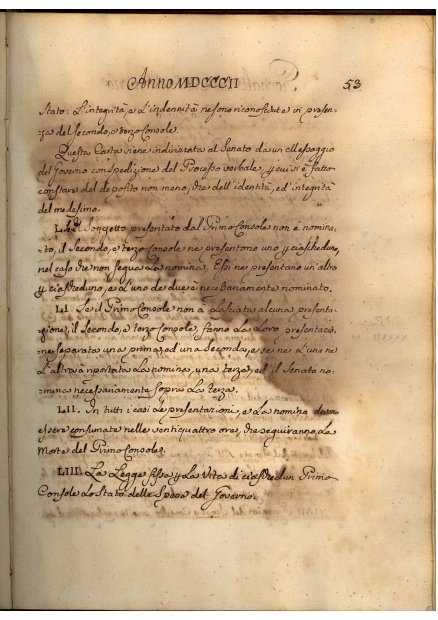 Anno MDCCCII 53
Stato: L'integrità, e L'indentità ne sono riconosciute in presen-
za del Secondo, e terzo Console.
Questa Carta viene indirizzata al Senato da un Messaggio
del Governo con spedizione del Processo verbale, in cui si è fatto
constare del deposito non meno, che dell'identità, ed integrità
del medesimo.
L. Soggetto presentato dal Primo Console non è nomina-
to, il Secondo, e terzo Console ne presentono uno p ciascheduno,
nel caso che non segua La nomina. Essi ne presentano un'altro
p ciascheduno, e L'uno de due è necessariamente nominato.
LI. Se il Primo Console non à Lasciata alcuna presenta-
zione, il Secondo, e terzo Console, fanno La Loro presentazio-
ne; separata una prima, ed una Seconda, e se ne L'una ne
L'altra à riportata La nomina, una terza, ed il Senato no-
mina necessariamente sopra La terza.
LII. In tutti i casi Le presentazioni, e La nomina
essere consumate nelle ventiquattro ore, che seguiranno La
Morte del Primo Console.
LIII. La Legge fissa p La Vita di ciaschedun Primo
Console Lo Stato delle Spese del Governo.